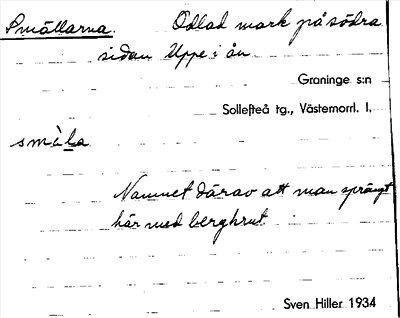 Smällarna. Odlad mark på södra
sidan Uppe i ån
Graninge s:n
Sollefteå tg., Västernorrl. l.
smä̀la
Namnet därav att man sprängt
här med bergkrut
Sven Hiller 1934